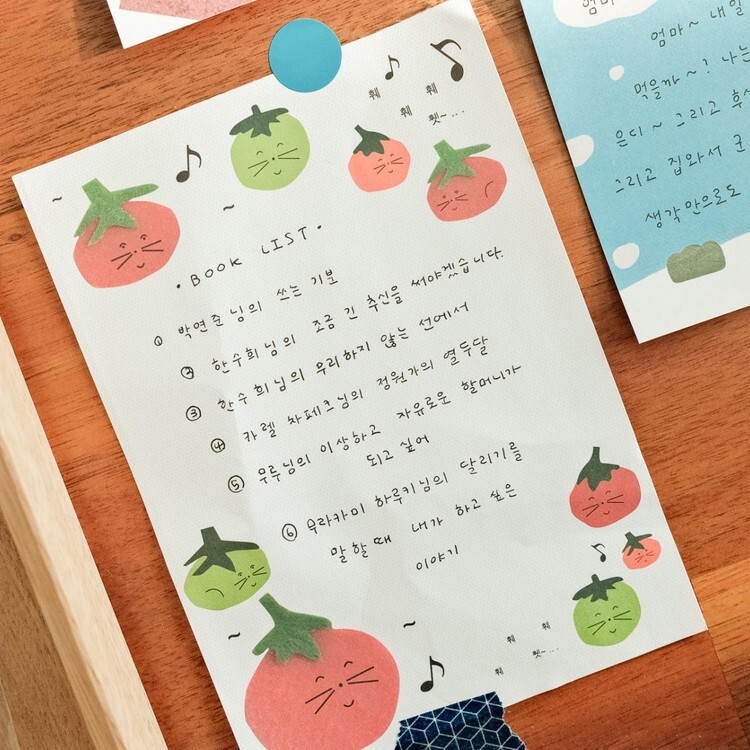 훼
훼 훼
휏~....
~
~
• BOOK LIST •
① 박연준님의 쓰는 기분
② 한수희님의 조금 긴 추신을 써야겠습니다.
③ 한수희님의 무리하지 않는 선에서
④ 카렐 차페크님의 정원가의 열두달
⑤ 무루님의 이상하고 자유로운 할머니가
되고 싶어
⑥ 무라카미 하루키님의 달리기를
말할때 내가 하고 싶은
이야기
~
~
훼 훼
훼 휏~...
엄마
엄마~ 내일
먹을까~? 나는
은디~ 그리고
그리고 집와서
생각만으로도